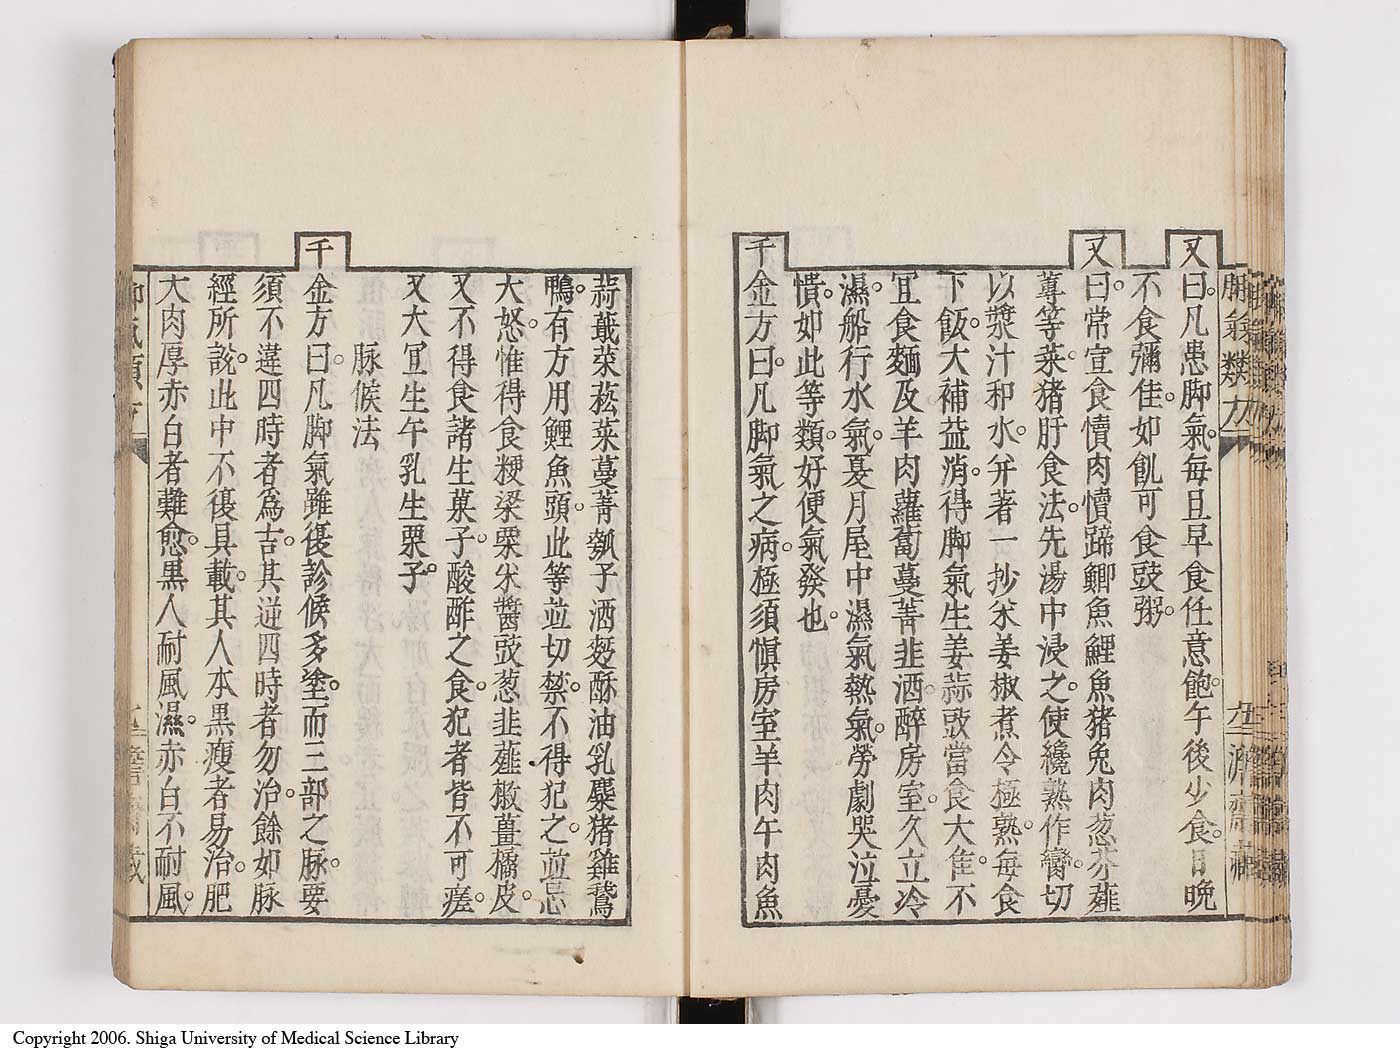 脚氣類九
又曰凡患脚氣每旦早食任意飽午後少食日晚
不食彌佳如飢可食豉粥
又曰常宜食犢肉犢蹄鯽魚鯉魚猪兔肉葱芥薤
蓴等菜猪肝食法先湯中浸之使纔熟作臠切
以漿汁和水并著一抄米姜椒煮令極熟每食
下飯大補益消得脚氣生姜蒜豉當食大佳不
宜食麵及羊肉蘿蔔蔓菁韭酒醉房室久立冷
濕船行水氣夏月屋中濕氣熱氣勞劇哭泣憂
憒如此等類好便氣發也
千金方曰凡脚氣之病極須愼房室羊肉牛肉魚
蒜蕺菜菘菜蔓菁瓠子酒麪酥油乳糜猪雞鵞
鴨有方用鯉魚頭此等並切禁不得犯之並忌
大怒惟得食粳梁粟米醬豉葱韭薤椒薑橘皮
又不得食諸生菓子酸酢之食犯者皆不可瘥
又大宜生午乳生栗子
脉候法
千金方曰凡脚氣雖復診候多塗而三部之脉要
須不違四時者爲吉其逆四時者勿治餘如脉
經所說此中不復具載其人本黑瘦者易治肥
大肉厚赤白者難愈黒人耐風濕赤白不耐風